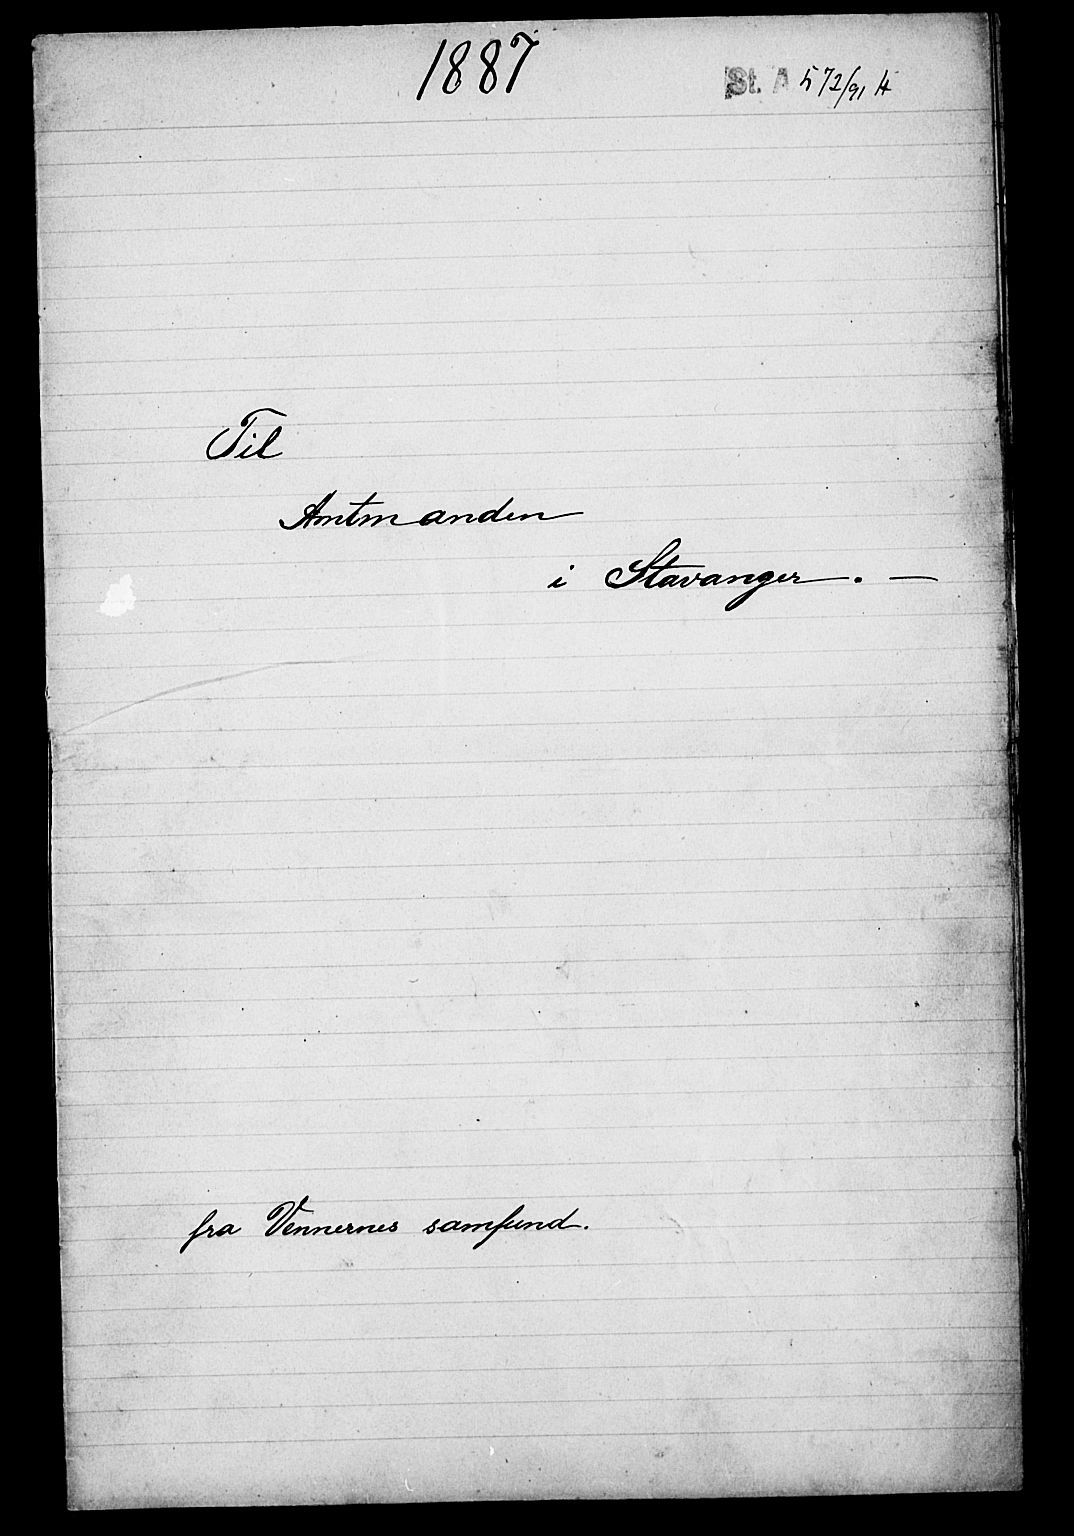 1887
St. A 572/91 H
Til
Amtmanden
i Stavanger. —
fra Vennernes samfund.